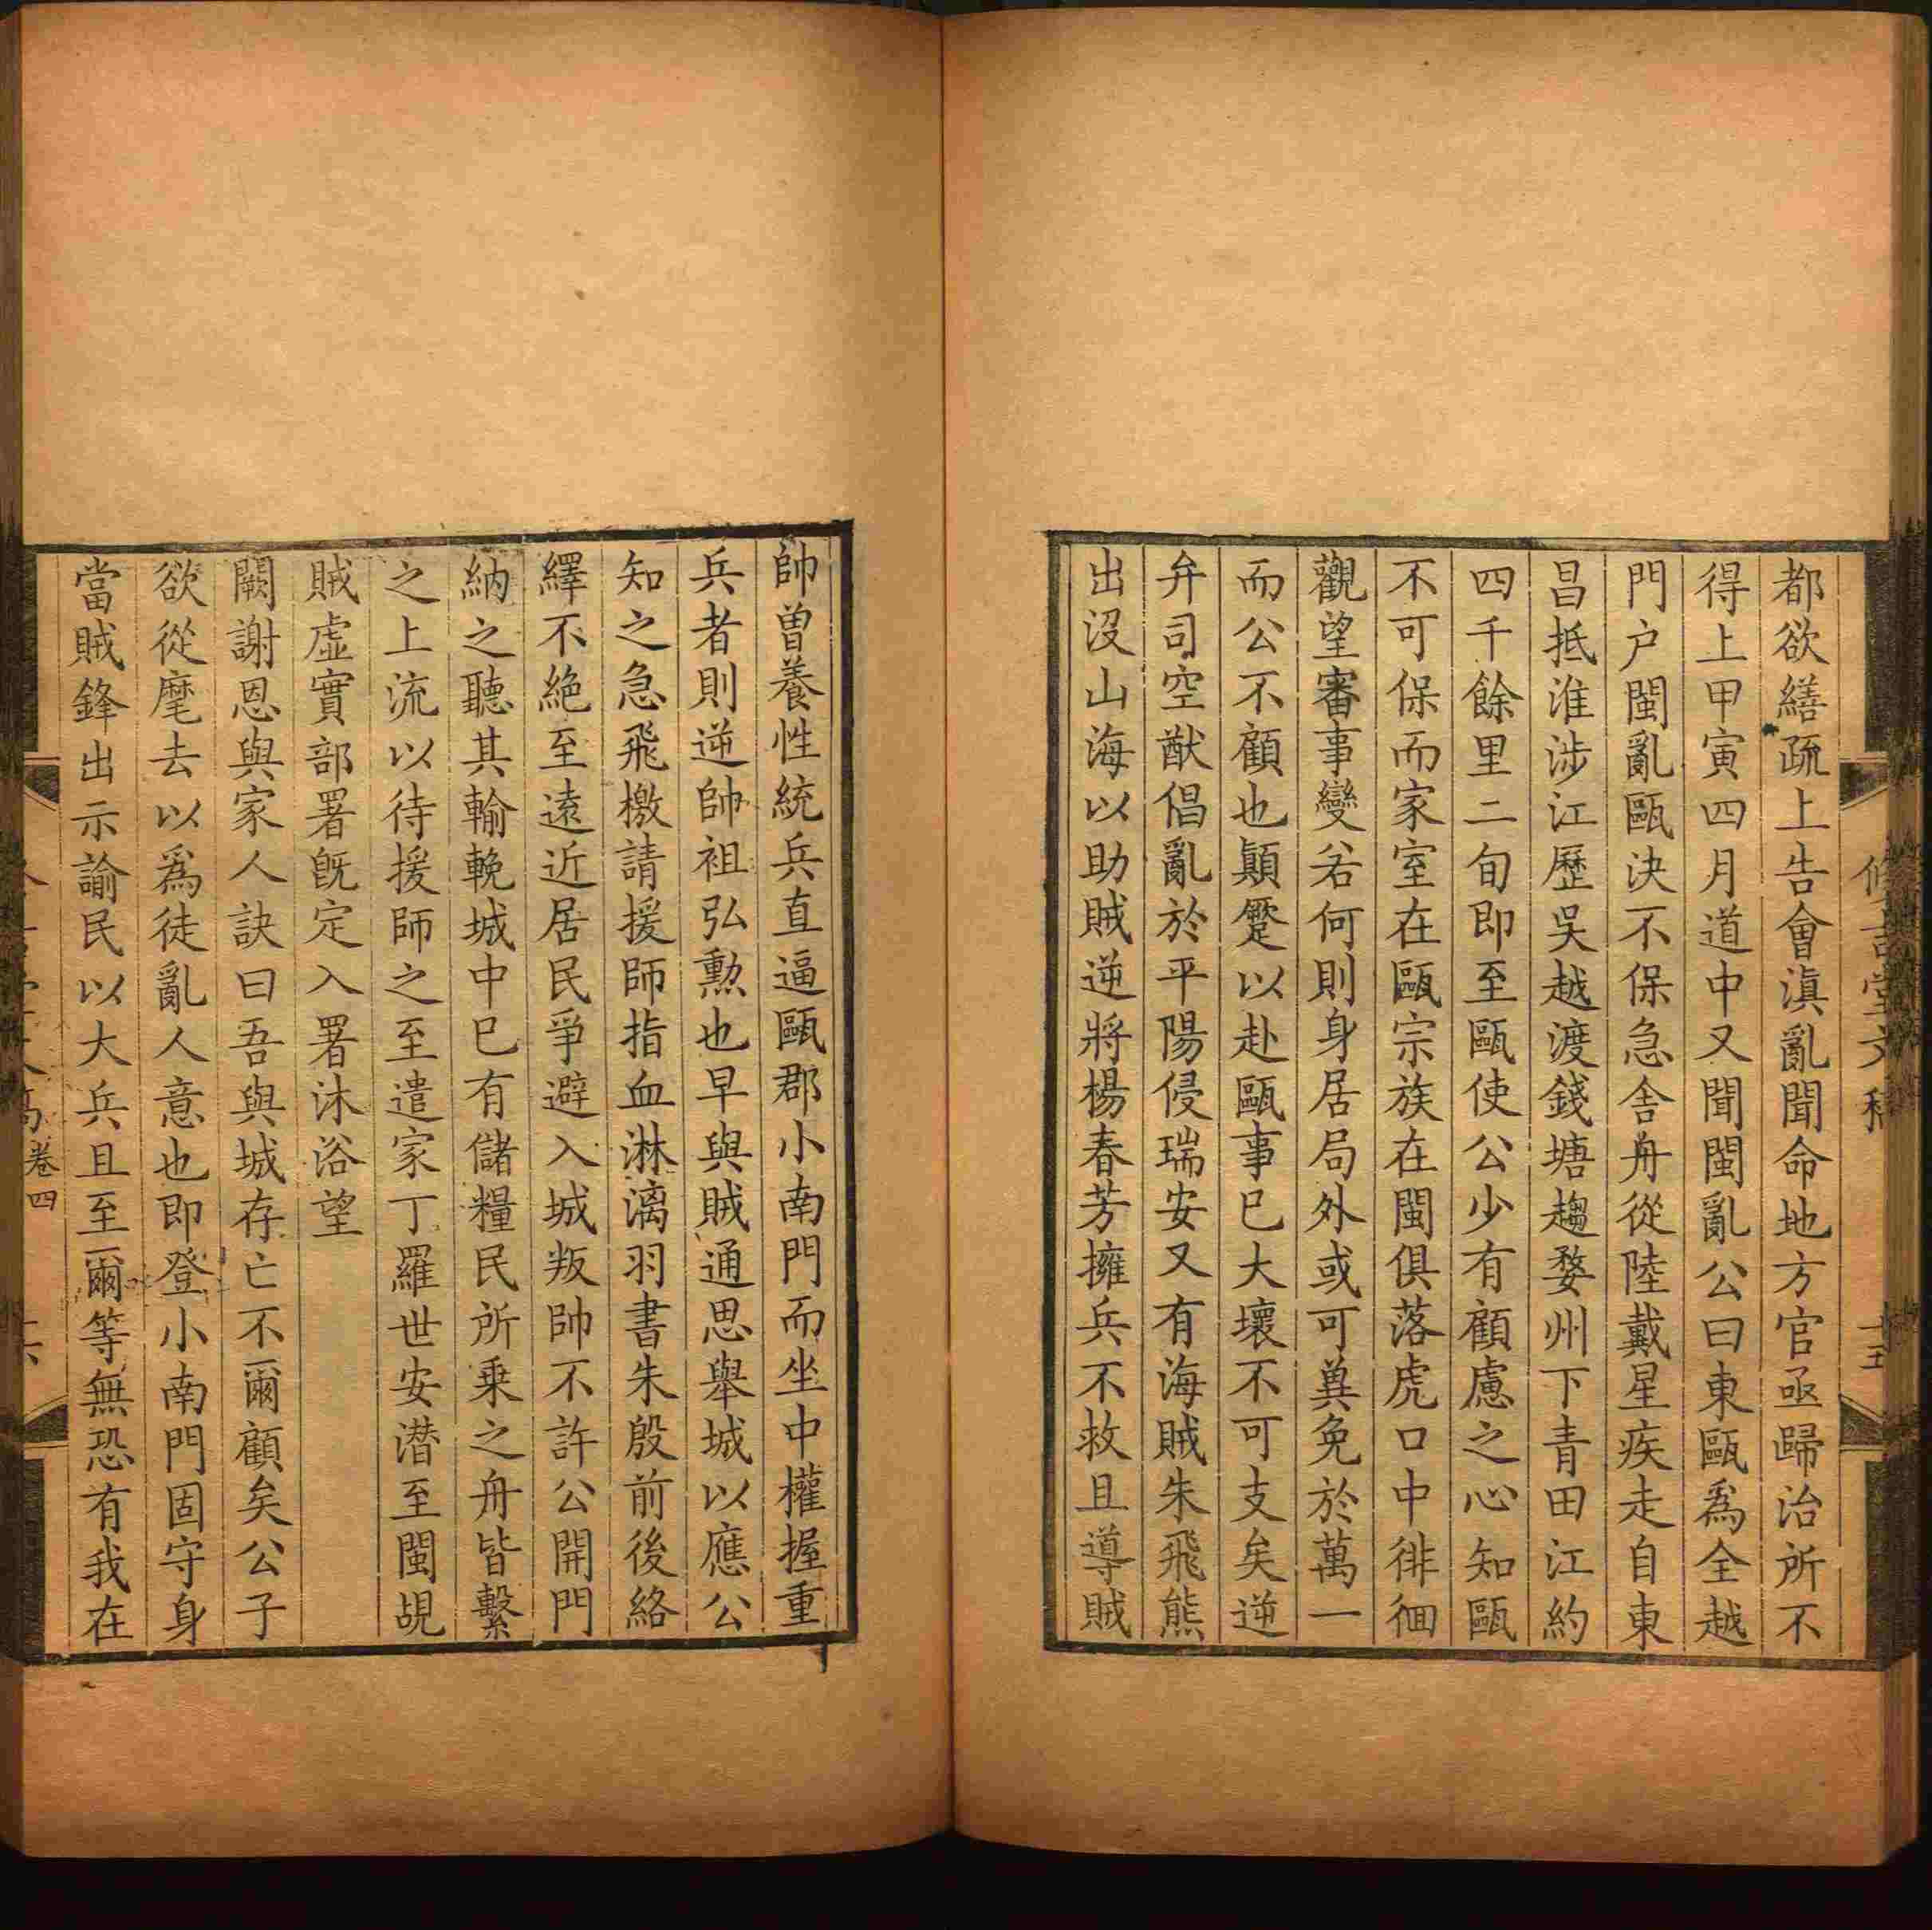 都欲繕疏上告會滇亂聞命地方官亟歸治所不
得上甲寅四月道中又聞閩亂公曰東甌爲全越
門户閩亂甌決不保急舍舟從陸戴星疾走自東
昌抵淮涉江歷吳越渡錢塘趨婺州下青田江約
四千餘里二旬即至甌使公少有顧慮之心知甌
不可保而家室在甌宗族在閩俱落虎口中徘徊
觀望審事變若何則身居局外或可兾免於萬一
而公不顧也顛蹷以赴甌事已大壞不可支矣逆
弁司空猷倡亂於平陽侵瑞安又有海賊朱飛熊
出沒山海以助賊逆將楊春芳擁兵不救且導賊
帥曾養性統兵直逼甌郡小南門而坐中權握重
兵者則逆帥祖弘勲也早與賊通思舉城以應公
知之急飛檄請援師指血淋漓羽書朱殷前後絡
繹不絶至遠近居民爭避入城叛帥不許公開門
納之聽其輸輓城中已有儲糧民所乗之舟皆繫
之上流以待援師之至遣家丁羅世安潛至閩覘
賊虛實部署旣定入署沐浴望
闕謝恩與家人訣曰吾與城存亡不爾顧矣公子
欲從麾去以爲徒亂人意也即登小南門固守身
當賊鋒出示諭民以大兵且至爾等無恐有我在
卷四